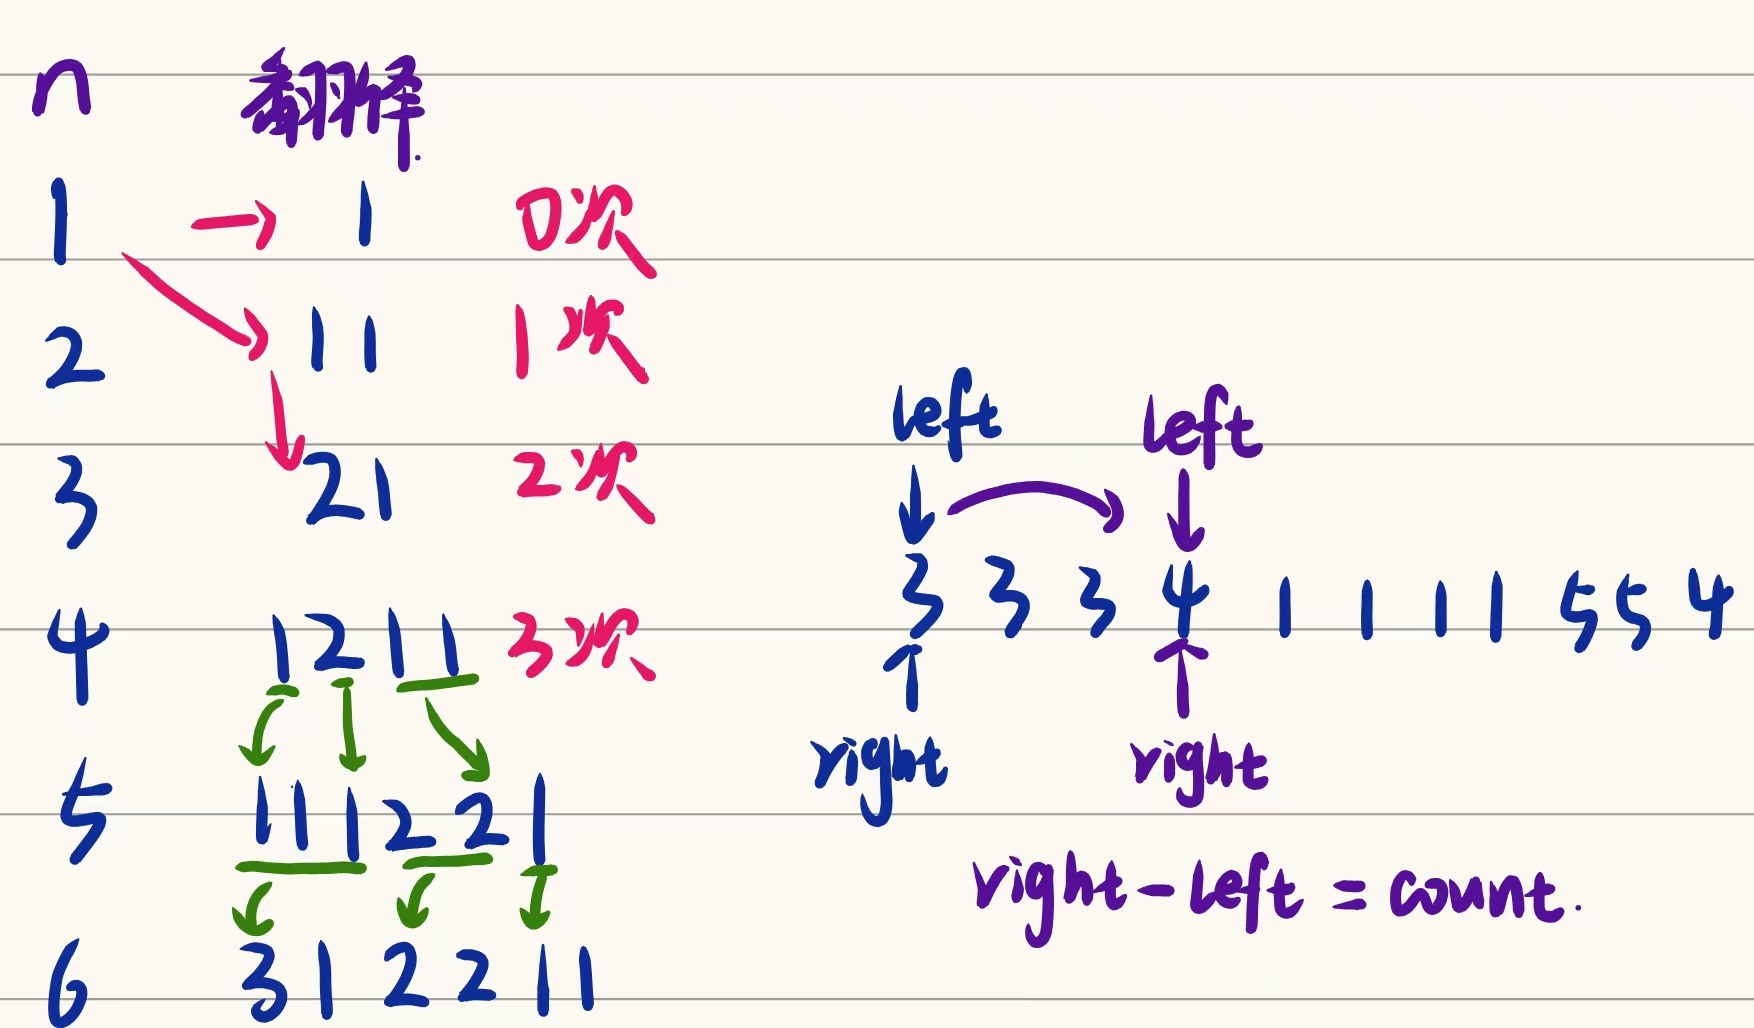 n 翻译.
1 → 1 0次
2 11 1次
3 21 2次
4 1211 3次
5 111221
6 312211
left left
3 3 3 4 1 1 1 1 5 5 4
right right
right - left = count.